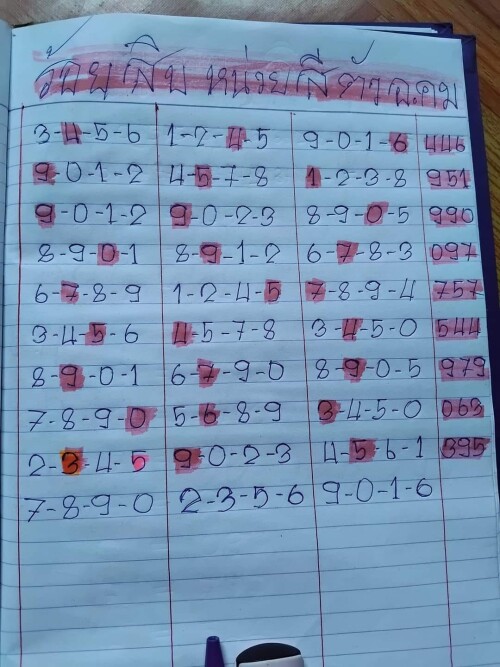 ร้อย สิบ หน่วย สี่ ตัว อ.คม
3-4-5-6 1-2-4-5 9-0-1-6 446
9-0-1-2 4-5-7-8 1-2-3-8 951
9-0-1-2 9-0-2-3 8-9-0-5 990
8-9-0-1 8-9-1-2 6-7-8-3 097
6-7-8-9 1-2-4-5 7-8-9-4 757
3-4-5-6 4-5-7-8 3-4-5-0 544
8-9-0-1 6-7-9-0 8-9-0-5 979
7-8-9-0 5-6-8-9 3-4-5-0 063
2-3-4-5 9-0-2-3 4-5-6-1 395
7-8-9-0 2-3-5-6 9-0-1-6